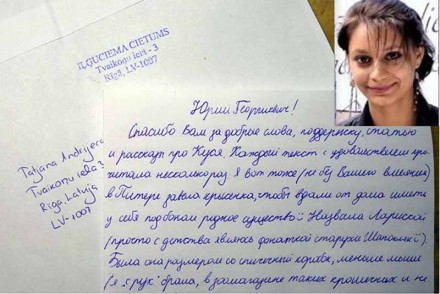 IĻĢUCIEMA CIETUMS
Tvaikoņu ielā - 3
Rīgā, LV-1007
Tatjana Andrijec
Tvaikoņu iela 3
Rīga, Latvija
LV-1007
Юрий Георгиевич!
Спасибо Вам за добрые слова, поддержку, статью
и рассказ про Кузя. Каждый текст с удовольствием про-
читала несколько раз. Я вот тоже (не без Вашего влияния)
в Питере завела крысёнка, чтобы вдали от дома иметь
у себя подобном родное существо. Назвала Лариской
(просто с детства являюсь фанаткой старухи Шапокляк).
Была она размером со спичечный коробок, меньше мыши
(я "с рук" брала, в зоомагазине таких крошечных и не